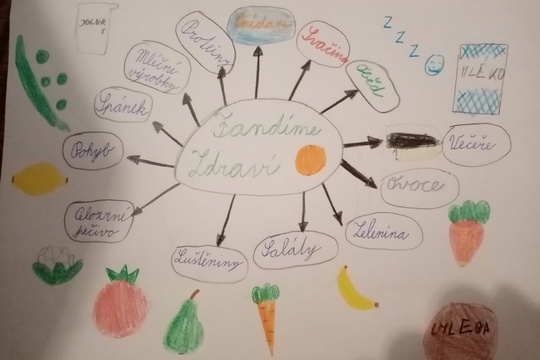 JOGUR
T
Proteiny
Snídaně
Svačina
Oběd
Z Z Z
MLÉKO
Mléčné
výrobky
Spánek
Zandíme
Zdraví
Pohyb
Večeře
Ovoce
Celozrné
pečivo
Luštěniny
Saláty
Zelenina
CHLEBA